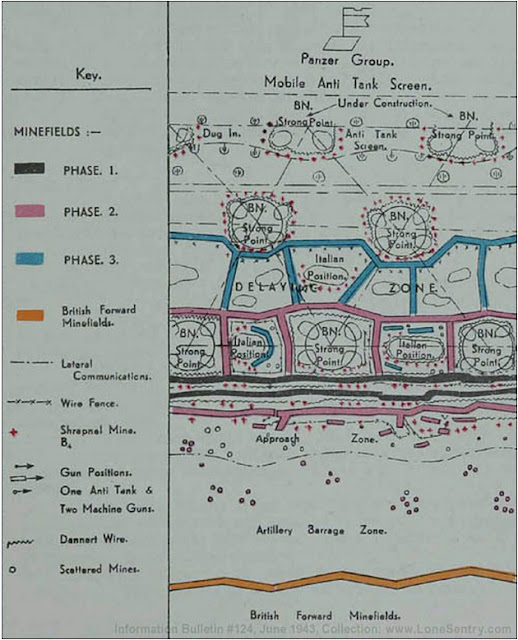 Key.
MINEFIELDS :—
PHASE. 1.
PHASE. 2.
PHASE. 3.
British Forward
Minefields.
Lateral
Communications.
Wire Fence.
Shrapnel Mine.
B4
Gun Positions.
One Anti Tank &
Two Machine Guns.
Dannert Wire.
Scattered Mines.
Panzer Group.
Mobile Anti Tank Screen.
BN.
Under Construction.
BN.
Strong Point.
Dug In.
Anti Tank
Screen.
Strong Point.
BN.
Strong
Point.
BN.
Strong
Point.
Italian
Position.
DELAYING ZONE.
BN.
Strong
Point.
Italian
Position.
BN.
Strong
Point.
Italian
Position.
BN.
Strong
Point.
Approach Zone.
Artillery Barrage Zone.
British Forward Minefields.
Information Bulletin #124, June 1943, Collection: www.LoneSentry.com